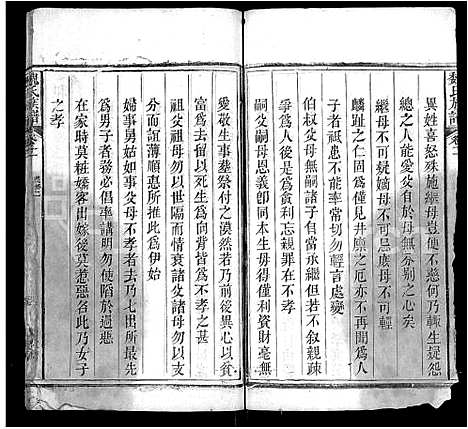 魏氏族譜
異姓喜怒殊施繼母豈便不慈何乃輒生疑怨
總之人能孝於父母無分別之心矣
繼母不可疑嫡母不可忌庶母不可慢
麟趾之仁固爲僅見井廩之厄亦不再聞爲人
子者祗患不能孝常切勿輕言處變
伯叔父母無嗣諸子宜承繼但若不叙親疎
爭爲人後是爲貪利忘親罪在不孝
嗣父母恩義卽同本生毋得僅利資財毫無
愛敬生事塟祭付之漠然若乃前後異心以貧
富爲去留以死生爲向背皆爲不孝之甚
祖父祖母勿以世隔而情衰諸父諸母勿以支
分而誼薄推此爲伊始
婦事舅姑如事父母不孝乃七出所首
爲男子者務宜倡率講明勿使陷於過惡
在家時莫粧嬌客出嫁後莫惹惡名此乃女子
之孝
魏氏族譜
卷二